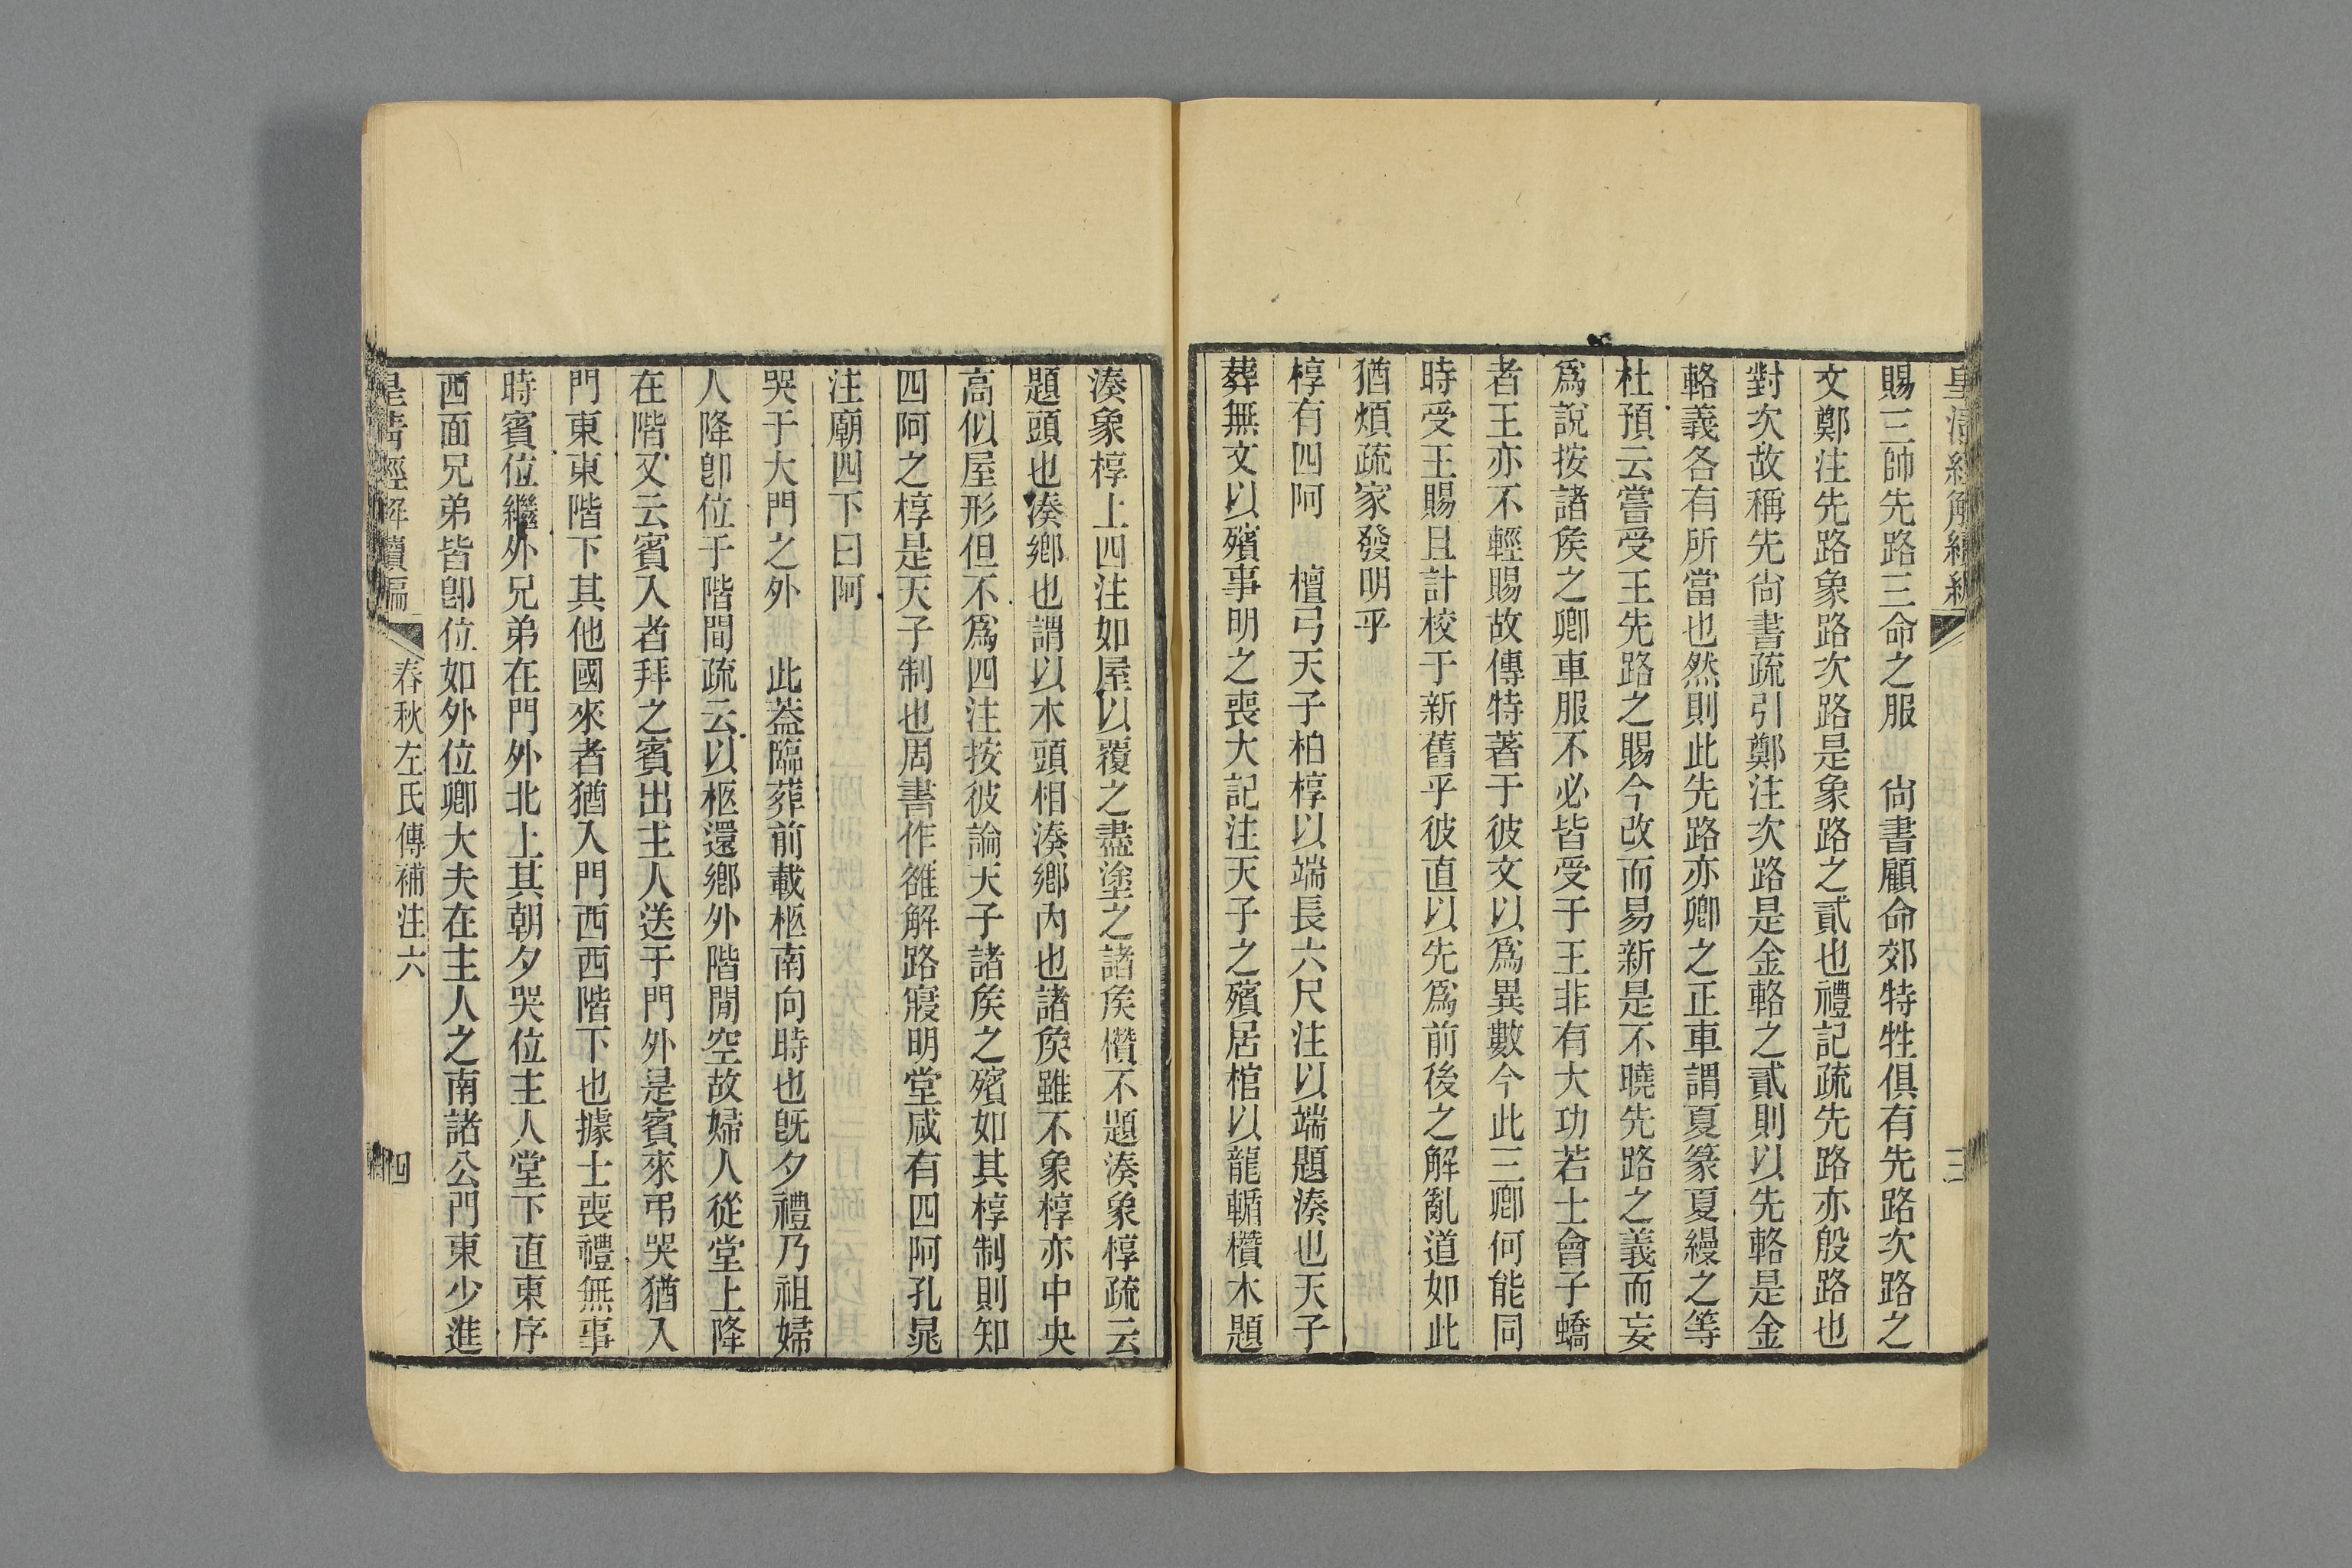 皇清經解續編
三
賜三帥先路三命之服　尙書顧命郊特牲俱有先路次路之
文鄭注先路象路次路是象路之貳也禮記疏先路亦殷路也
對次故稱先尙書疏引鄭注次路是金輅之貳則以先輅是金
輅義各有所當也然則此先路亦卿之正車謂夏篆夏縵之等
杜預云嘗受王先路之賜今改而易新是不曉先路之義而妄
爲說按諸矦之卿車服不必皆受于王非有大功若士會子蟜
者王亦不輕賜故傳特著于彼文以爲異數今此三卿何能同
時受王賜且計校于新舊乎彼直以先爲前後之解亂道如此
猶煩疏家發明乎
椁有四阿　檀弓天子柏椁以端長六尺注以端題湊也天子
葬無文以殯事明之喪大記注天子之殯居棺以龍輴欑木題
湊象椁上四注如屋以覆之盡塗之諸矦欑不題湊象椁疏云
題頭也湊鄕也謂以木頭相湊鄕內也諸矦雖不象椁亦中央
高似屋形但不爲四注按彼論天子諸矦之殯如其椁制則知
四阿之椁是天子制也周書作雒解路寢明堂咸有四阿孔晁
注廟四下曰阿
哭于大門之外　此葢臨葬前載柩南向時也旣夕禮乃祖婦
人降卽位于階間疏云以柩還鄕外階閒空故婦人從堂上降
在階又云賓入者拜之賓出主人送于門外是賓來弔哭猶入
門東東階下其他國來者猶入門西西階下也據士喪禮無事
時賓位繼外兄弟在門外北上其朝夕哭位主人堂下直東序
西面兄弟皆卽位如外位卿大夫在主人之南諸公門東少進
皇清經解續編
春秋左氏傳補注六
四